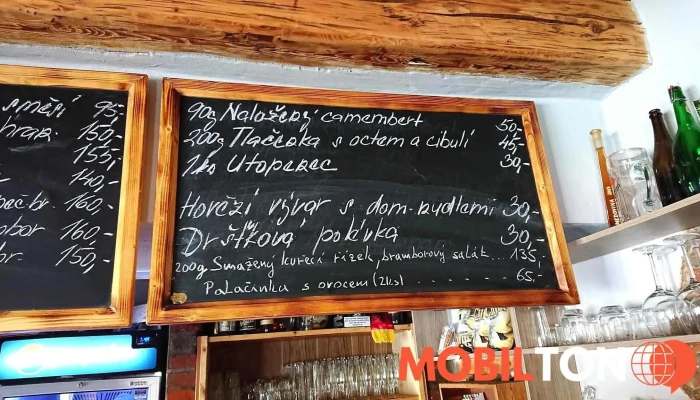 směsí 95,-
hrac. 150,-
155,-
140,-
br. 160,-
obor 160,-
br. 150,-
90g Naložený camembert 50,-
200g Tlačenka s octem a cibulí 45,-
1ks Utopenec 30,-
Hovězí vývar s dom. nudlemi 30,-
Dršťková polévka 30,-
200g Smažený kuřecí řízek, bramborový salát... 135,-
Palačinka s ovocem (2ks) ....... 65,-
MOBILTON